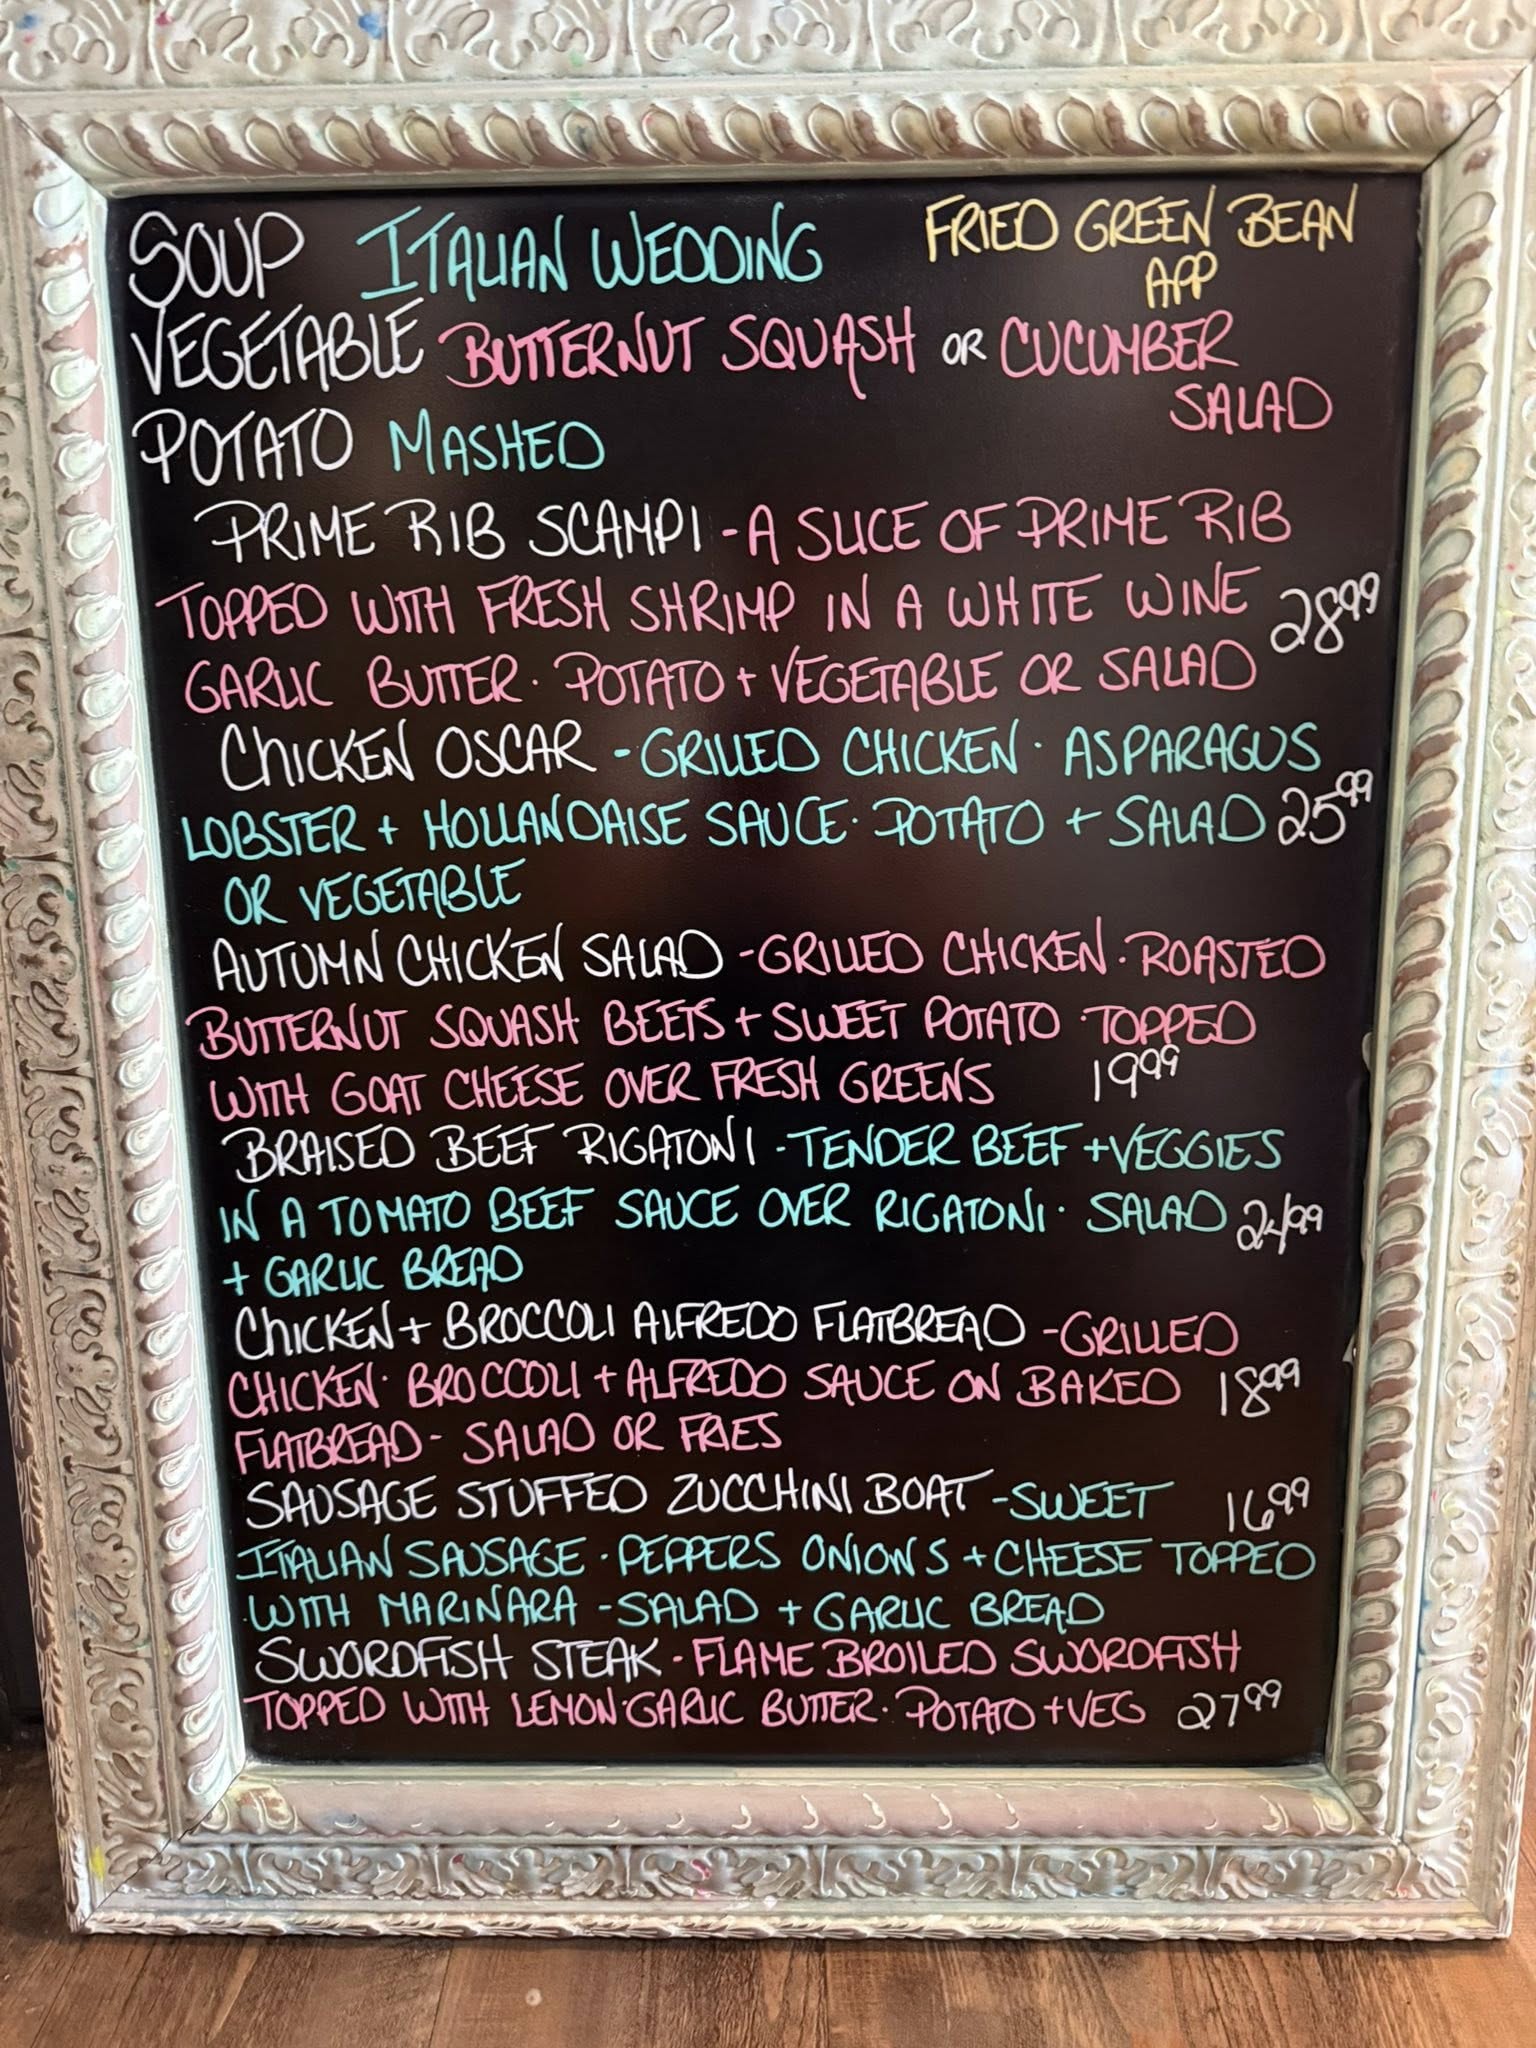 SOUP ITALIAN WEDDING FRIED GREEN BEAN
APP
VEGETABLE BUTTERNUT SQUASH OR CUCUMBER
SALAD
POTATO MASHED
PRIME RIB SCAMPI - A SLICE OF PRIME RIB
TOPPED WITH FRESH SHRIMP IN A WHITE WINE 28.99
GARLIC BUTTER · POTATO + VEGETABLE OR SALAD
CHICKEN OSCAR - GRILLED CHICKEN · ASPARAGUS
LOBSTER + HOLLANDAISE SAUCE · POTATO + SALAD 25.99
OR VEGETABLE
AUTUMN CHICKEN SALAD - GRILLED CHICKEN · ROASTED
BUTTERNUT SQUASH BEETS + SWEET POTATO · TOPPED
WITH GOAT CHEESE OVER FRESH GREENS 19.99
BRAISED BEEF RIGATONI - TENDER BEEF + VEGGIES
IN A TOMATO BEEF SAUCE OVER RIGATONI · SALAD 24.99
+ GARLIC BREAD
CHICKEN + BROCCOLI ALFREDO FLATBREAD - GRILLED
CHICKEN · BROCCOLI + ALFREDO SAUCE ON BAKED 18.99
FLATBREAD - SALAD OR FRIES
SAUSAGE STUFFED ZUCCHINI BOAT - SWEET 16.99
ITALIAN SAUSAGE · PEPPERS ONIONS + CHEESE TOPPED
WITH MARINARA - SALAD + GARLIC BREAD
SWORDFISH STEAK - FLAME BROILED SWORDFISH
TOPPED WITH LEMON · GARLIC BUTTER · POTATO + VEG 27.99